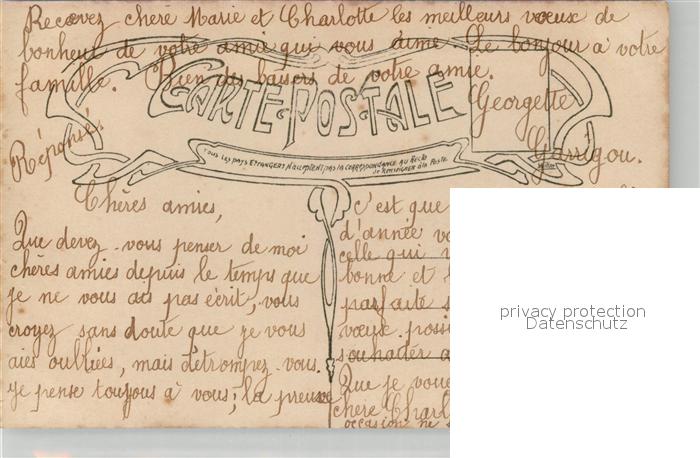 Recevez chère Marie et Charlotte les meilleurs vœux de
bonheur de votre amie qui vous aime. Le bonjour à votre
famille. Bien des baisers de votre amie.
Georgette
Garrigou.
CARTE-POSTALE
TOUS LES PAYS ETRANGERS N'ACCEPTENT PAS LA CORRESPONDANCE AU RECTO
SE RENSEIGNER À LA POSTE
Réponses
Chères amies,
Que devez-vous penser de moi
chères amies depuis le temps que
je ne vous ai pas écrit, vous
croyez sans doute que je vous
aies oubliées, mais détrompez-vous.
je pense toujours à vous; la preuve
c'est que
d'année
celle qui
bonne et
parfaite
vœux
souhaiter
Que je
chère
occasion ne
privacy protection
Datenschutz